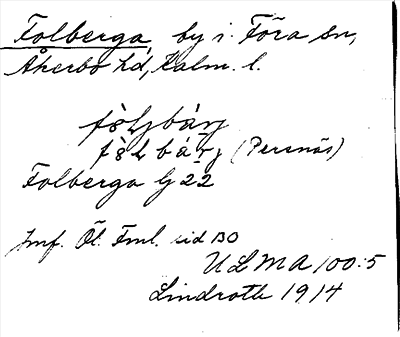 Folberga, by i Föra sn,
Åkerbo hd, Kalm. l.
fòljbárj
fòl bárj (Persnäs)
Folberga G 22
Jmf. Öl. Fml. sid 130
ULMA 100:5
Lindroth 1914